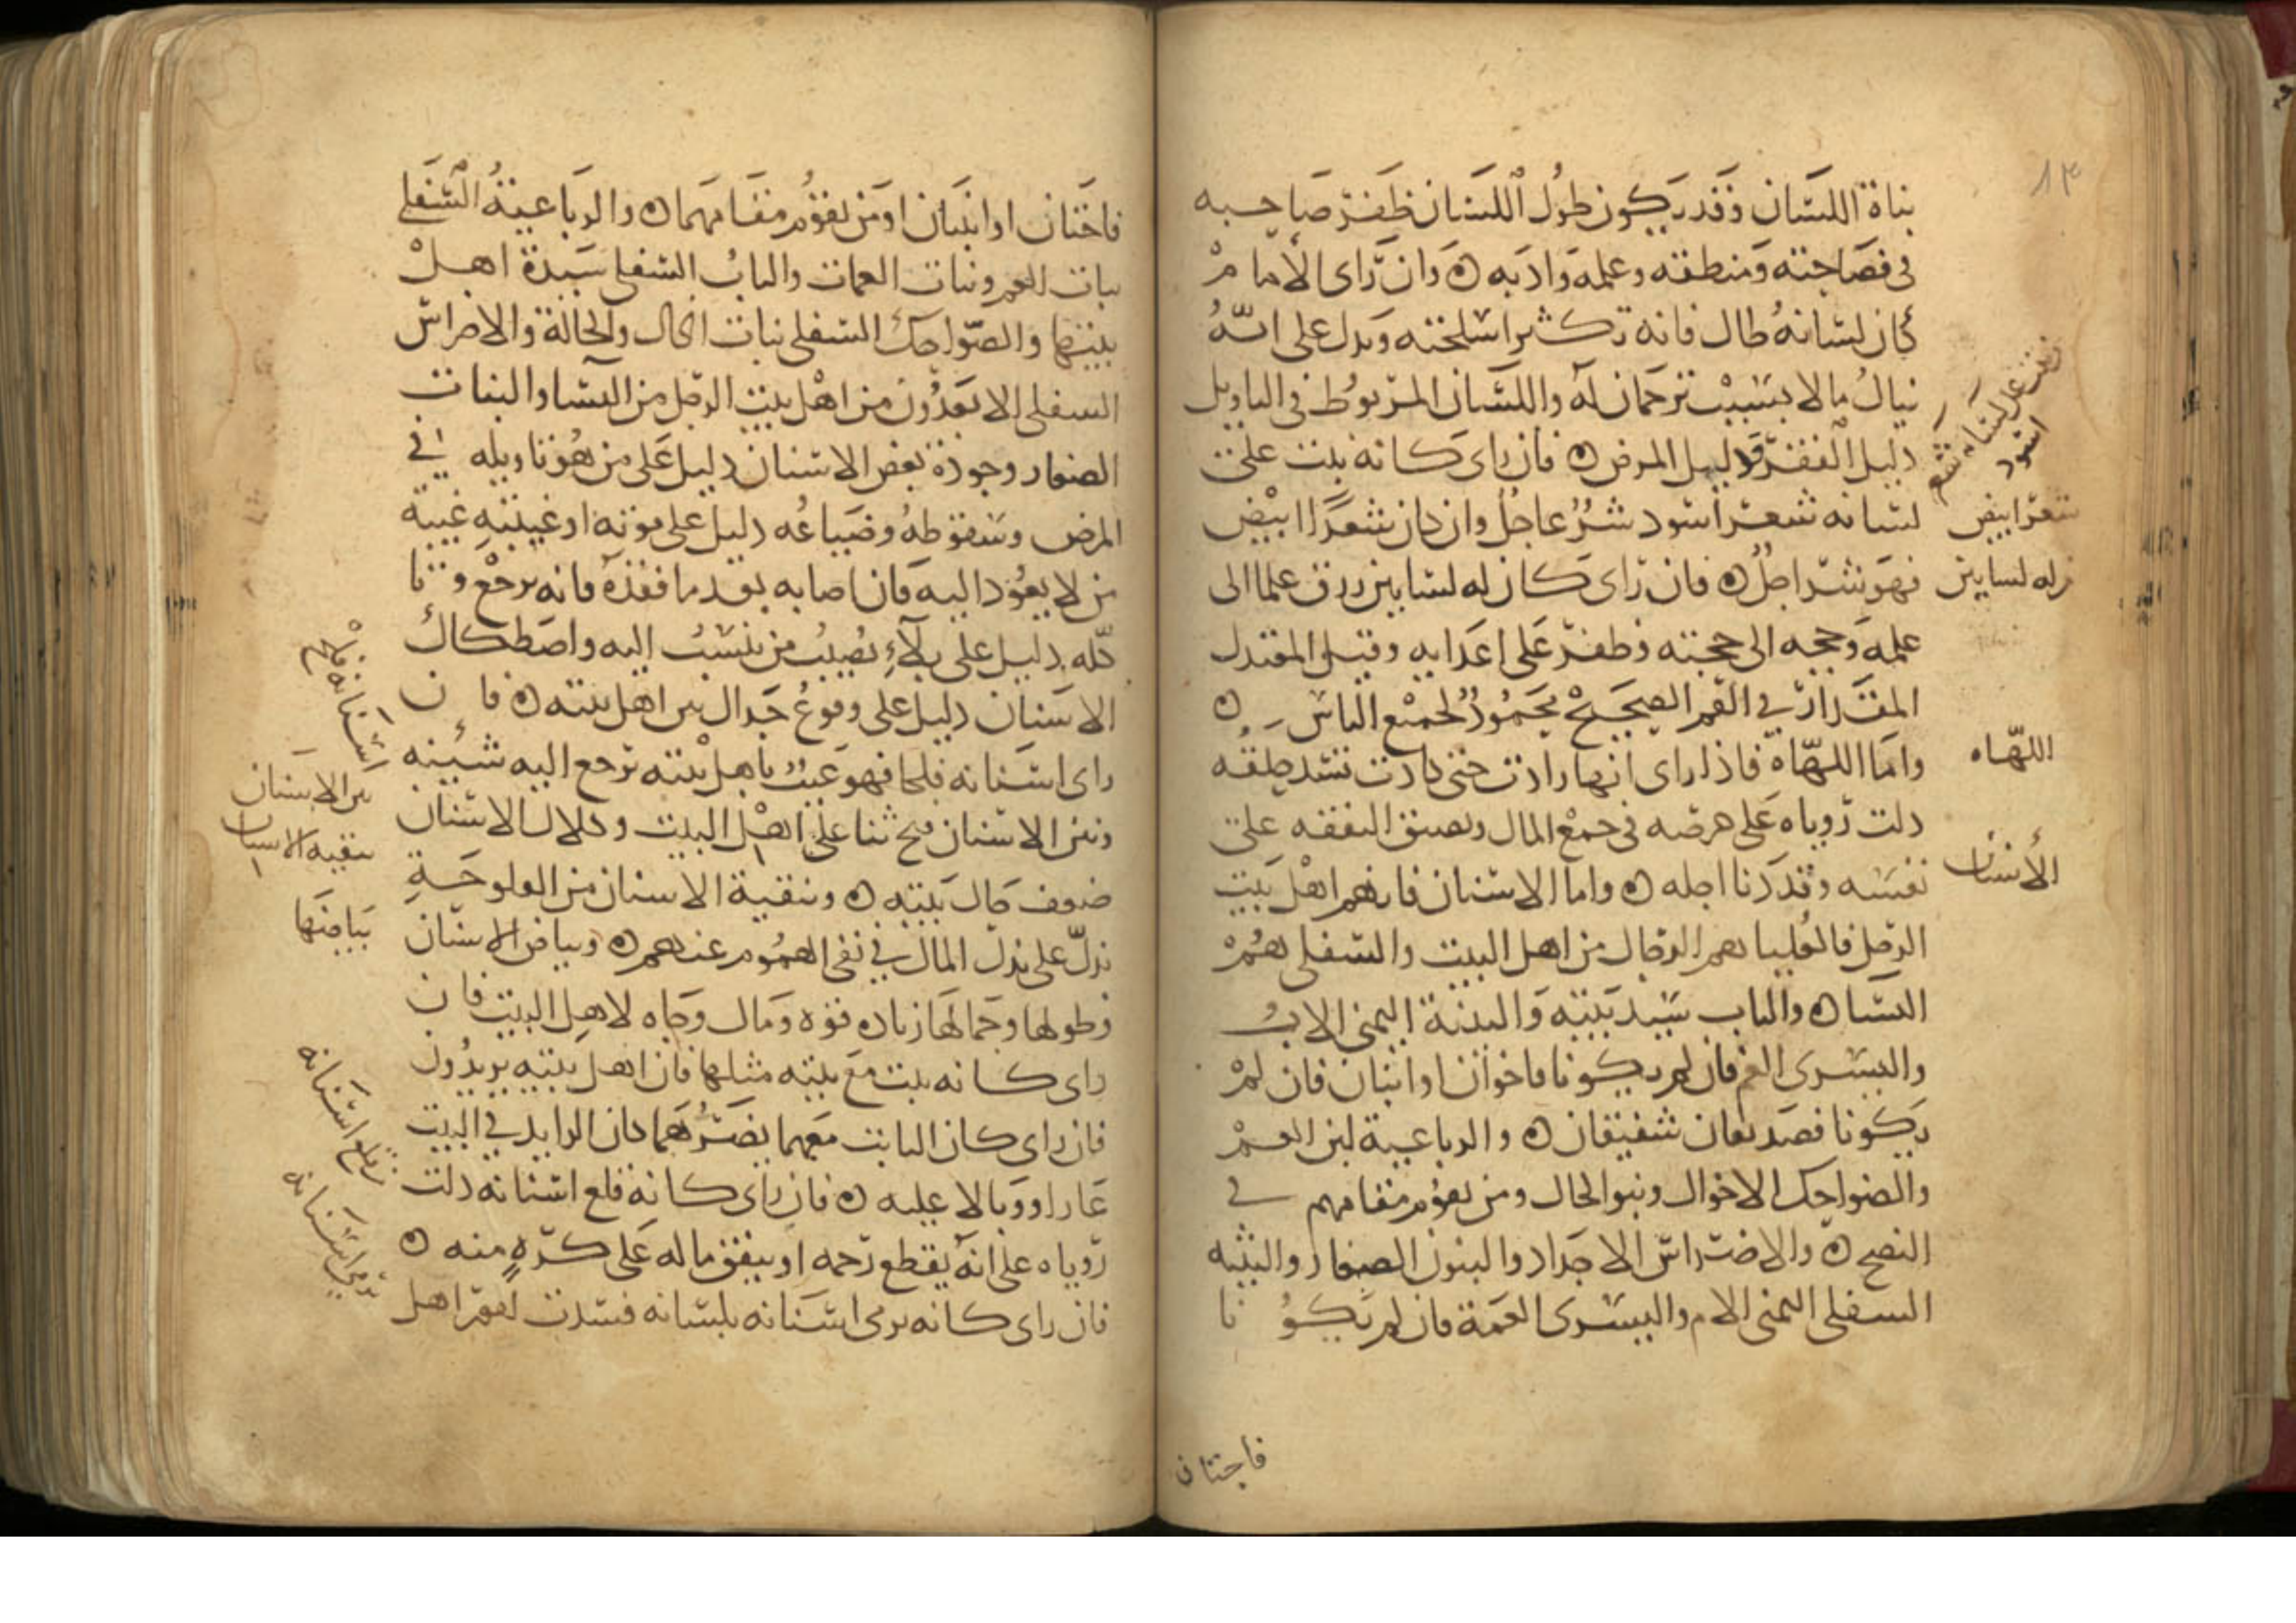 ١٣
بذاة اللسان وقد يكون طول اللسان ظفر صاحبه
في فصاحته ومنطقه وعلمه وادبه ه وان راى الامام
كان لسانه طال فانه تكثر اسلحته ويدل على انه
ينال مالا بسبب ترجمان له واللسان المربوط في التاويل
دليل الفقر ودليل المرض ه فان راى كانه نبت على
لسانه شعر اسود شر عاجل وان كان شعرا ابيض
فهو شر اجل ه فان راى كان له لسانين رزق علما الى
علمه وحجه الى حجته وظفر على اعدايه وقيل المعتدل
المقدار في الفم الصحيح محمود لجميع الناس ه
واما اللهاة فاذا راى انها زادت حتى كادت تسد حلقه
دلت روياه على حرصه في جمع المال وتضيق النفقه على
نفسه وقد دنا اجله ه واما الاسنان فانهم اهل بيت
الرجل فالعليا هم الرجال من اهل البيت والسفلى هم
النسا ه والناب سيد بيته والثنية اليمنى الاب
واليسرى العم فان لم يكونا فاخوان او ابنان فان لم
يكونا فصديقان شفيقان ه والرباعية لبن العم
والضواحك الاخوال وبنو الخال ومن يقوم مقامهم في
النصح ه والاضراس الاجداد والبنون الصغار والثنيه
السفلى اليمنى الام واليسرى العمة فان لم يكونا
فاختان
نبت على لسانه شعر
اسود
شعر ابيض
له لسانين
اللهاه
الاسنان
فاختان او ابنتان او من يقوم مقامهما ه والرباعية السفلى
بنات العم وبنات العمات والناب السفلى سيدة اهل
بيتها والضواحك السفلى بنات الخال والخالة والاضراس
السفلى الابعدون من اهل بيت الرجل من النسا والبنات
الصغار وجودة بعض الاسنان دليل على من هو تاويله في
المرض وسقوطه وضياعه دليل على موته او غيبته غيبة
من لا يعود اليه فان اصابه بعد ما فقده فانه يرجع وتا
كله دليل على بلاء يصيب من ينسب اليه واصطكاك
الاسنان دليل على وقوع جدال بين اهل بيته ه فان
راى اسنانه قلحا فهو عيب باهل بيته ترجع اليه شينه
ونتن الاسنان قبح ثنا على اهل البيت وكلال الاسنان
ضعف حال بيته ه وتنقية الاسنان من القلوحة
تدل على بذل المال في نفي الهموم عنهم ه وبياض الاسنان
وطولها وجمالها زيادة قوة ومال وجاه لاهل البيت فان
راى كانه نبت مع ثنيته مثلها فان اهل بيته يزيدون
فان راى كان النابت معهما يضرهما كان الزايد في البيت
عارا ووبالا عليه ه فان راى كانه قلع اسنانه دلت
روياه على انه يقطع رحمه او ينفق ماله على كره منه ه
فان راى كانه يرمى اسنانه بلسانه فسدت امور اهل
اسنانه قلح
نتن الاسنان
تنقيه الاسنان
بياضها
قلع اسنانه
يرمى اسنانه